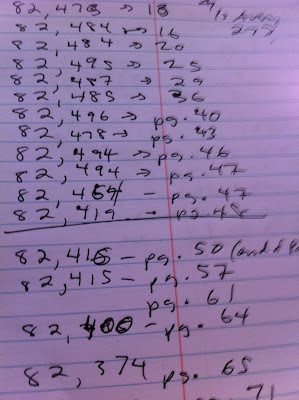 82,478 → 18
82,484 → 16
82,484 → 20
82,495 → 25
82,487 → 29
82,485 → 36
82,496 → pg. 40
82,478 → pg. 43
82,494 → pg. 46
82,494 → pg. 47
82,454 - pg. 47
82,419 - pg.
82,416 - pg. 50
82,415 - pg. 57
pg. 61
82,400 - pg. 64
82,374 pg. 65
pg. 71